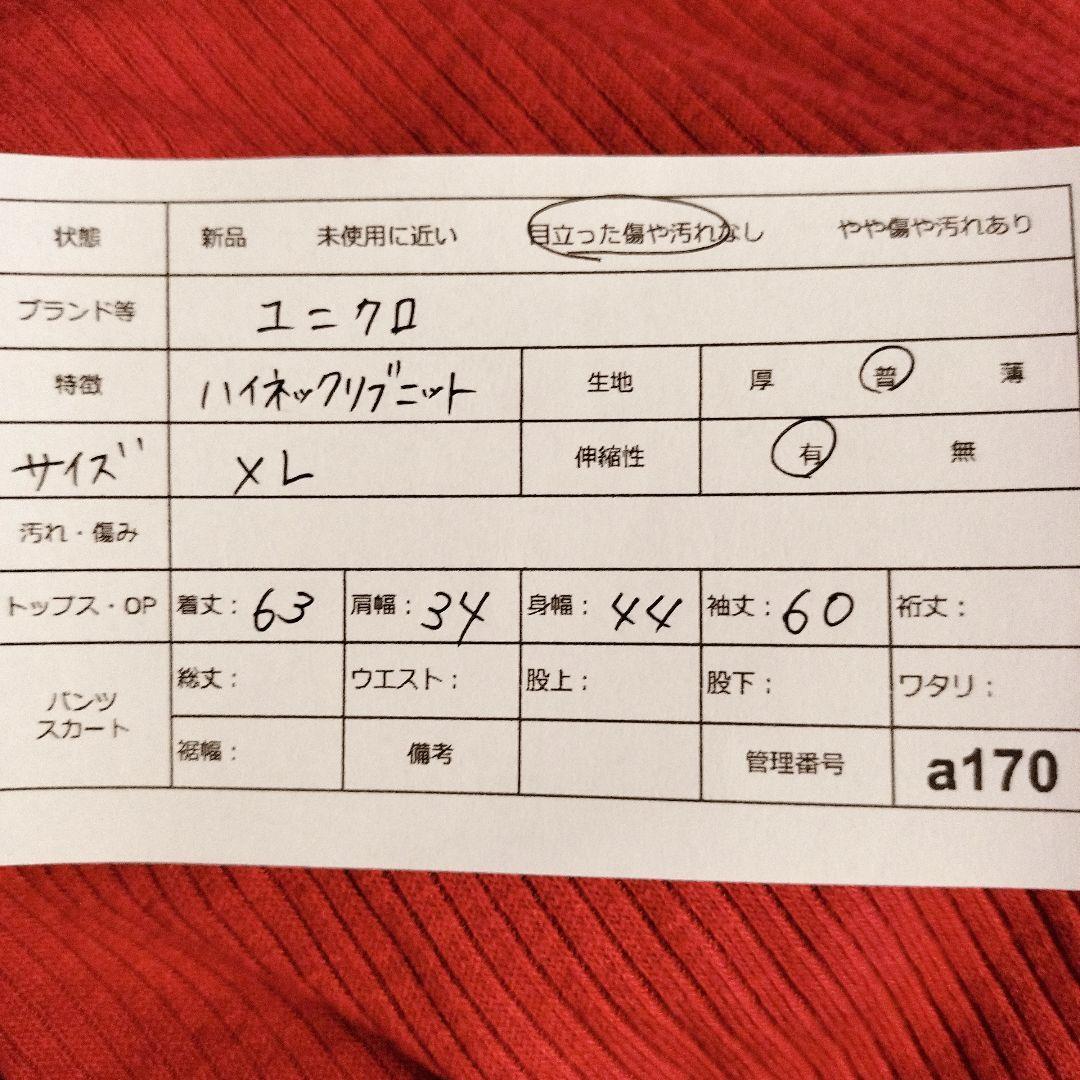 状態 新品 未使用に近い 目立った傷や汚れなし やや傷や汚れあり
ブランド等 ユニクロ
特徴 ハイネックリブニット 生地 厚 普 薄
サイズ XL 伸縮性 有 無
汚れ・傷み
トップス・OP 着丈: 63 肩幅: 34 身幅: 44 袖丈: 60 裄丈:
パンツ
スカート
総丈: ウエスト: 股上: 股下: ワタリ:
裾幅: 備考 管理番号 a170